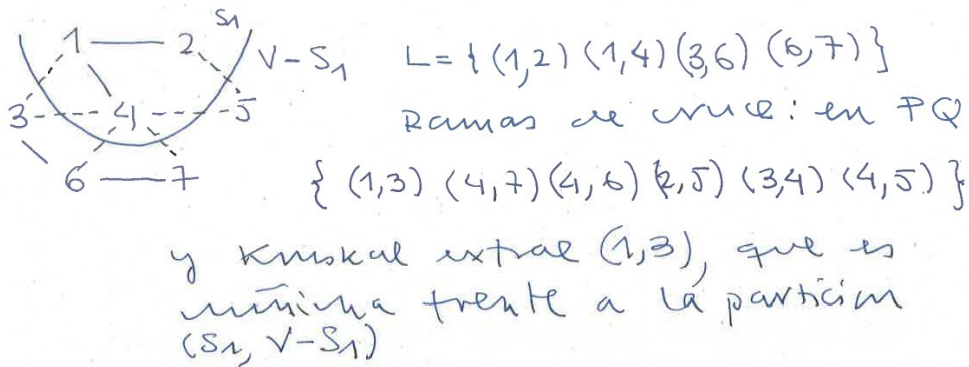 S1
1 2 V-S1 L={(1,2) (1,4) (3,6) (6,7)}
3 4 5 Ramas de cruce: en PQ
6 7 {(1,3) (4,7) (4,6) (2,5) (3,4) (4,5)}
y Kruskal extrae (1,3), que es
mínima frente a la particion
(S1, V-S1)